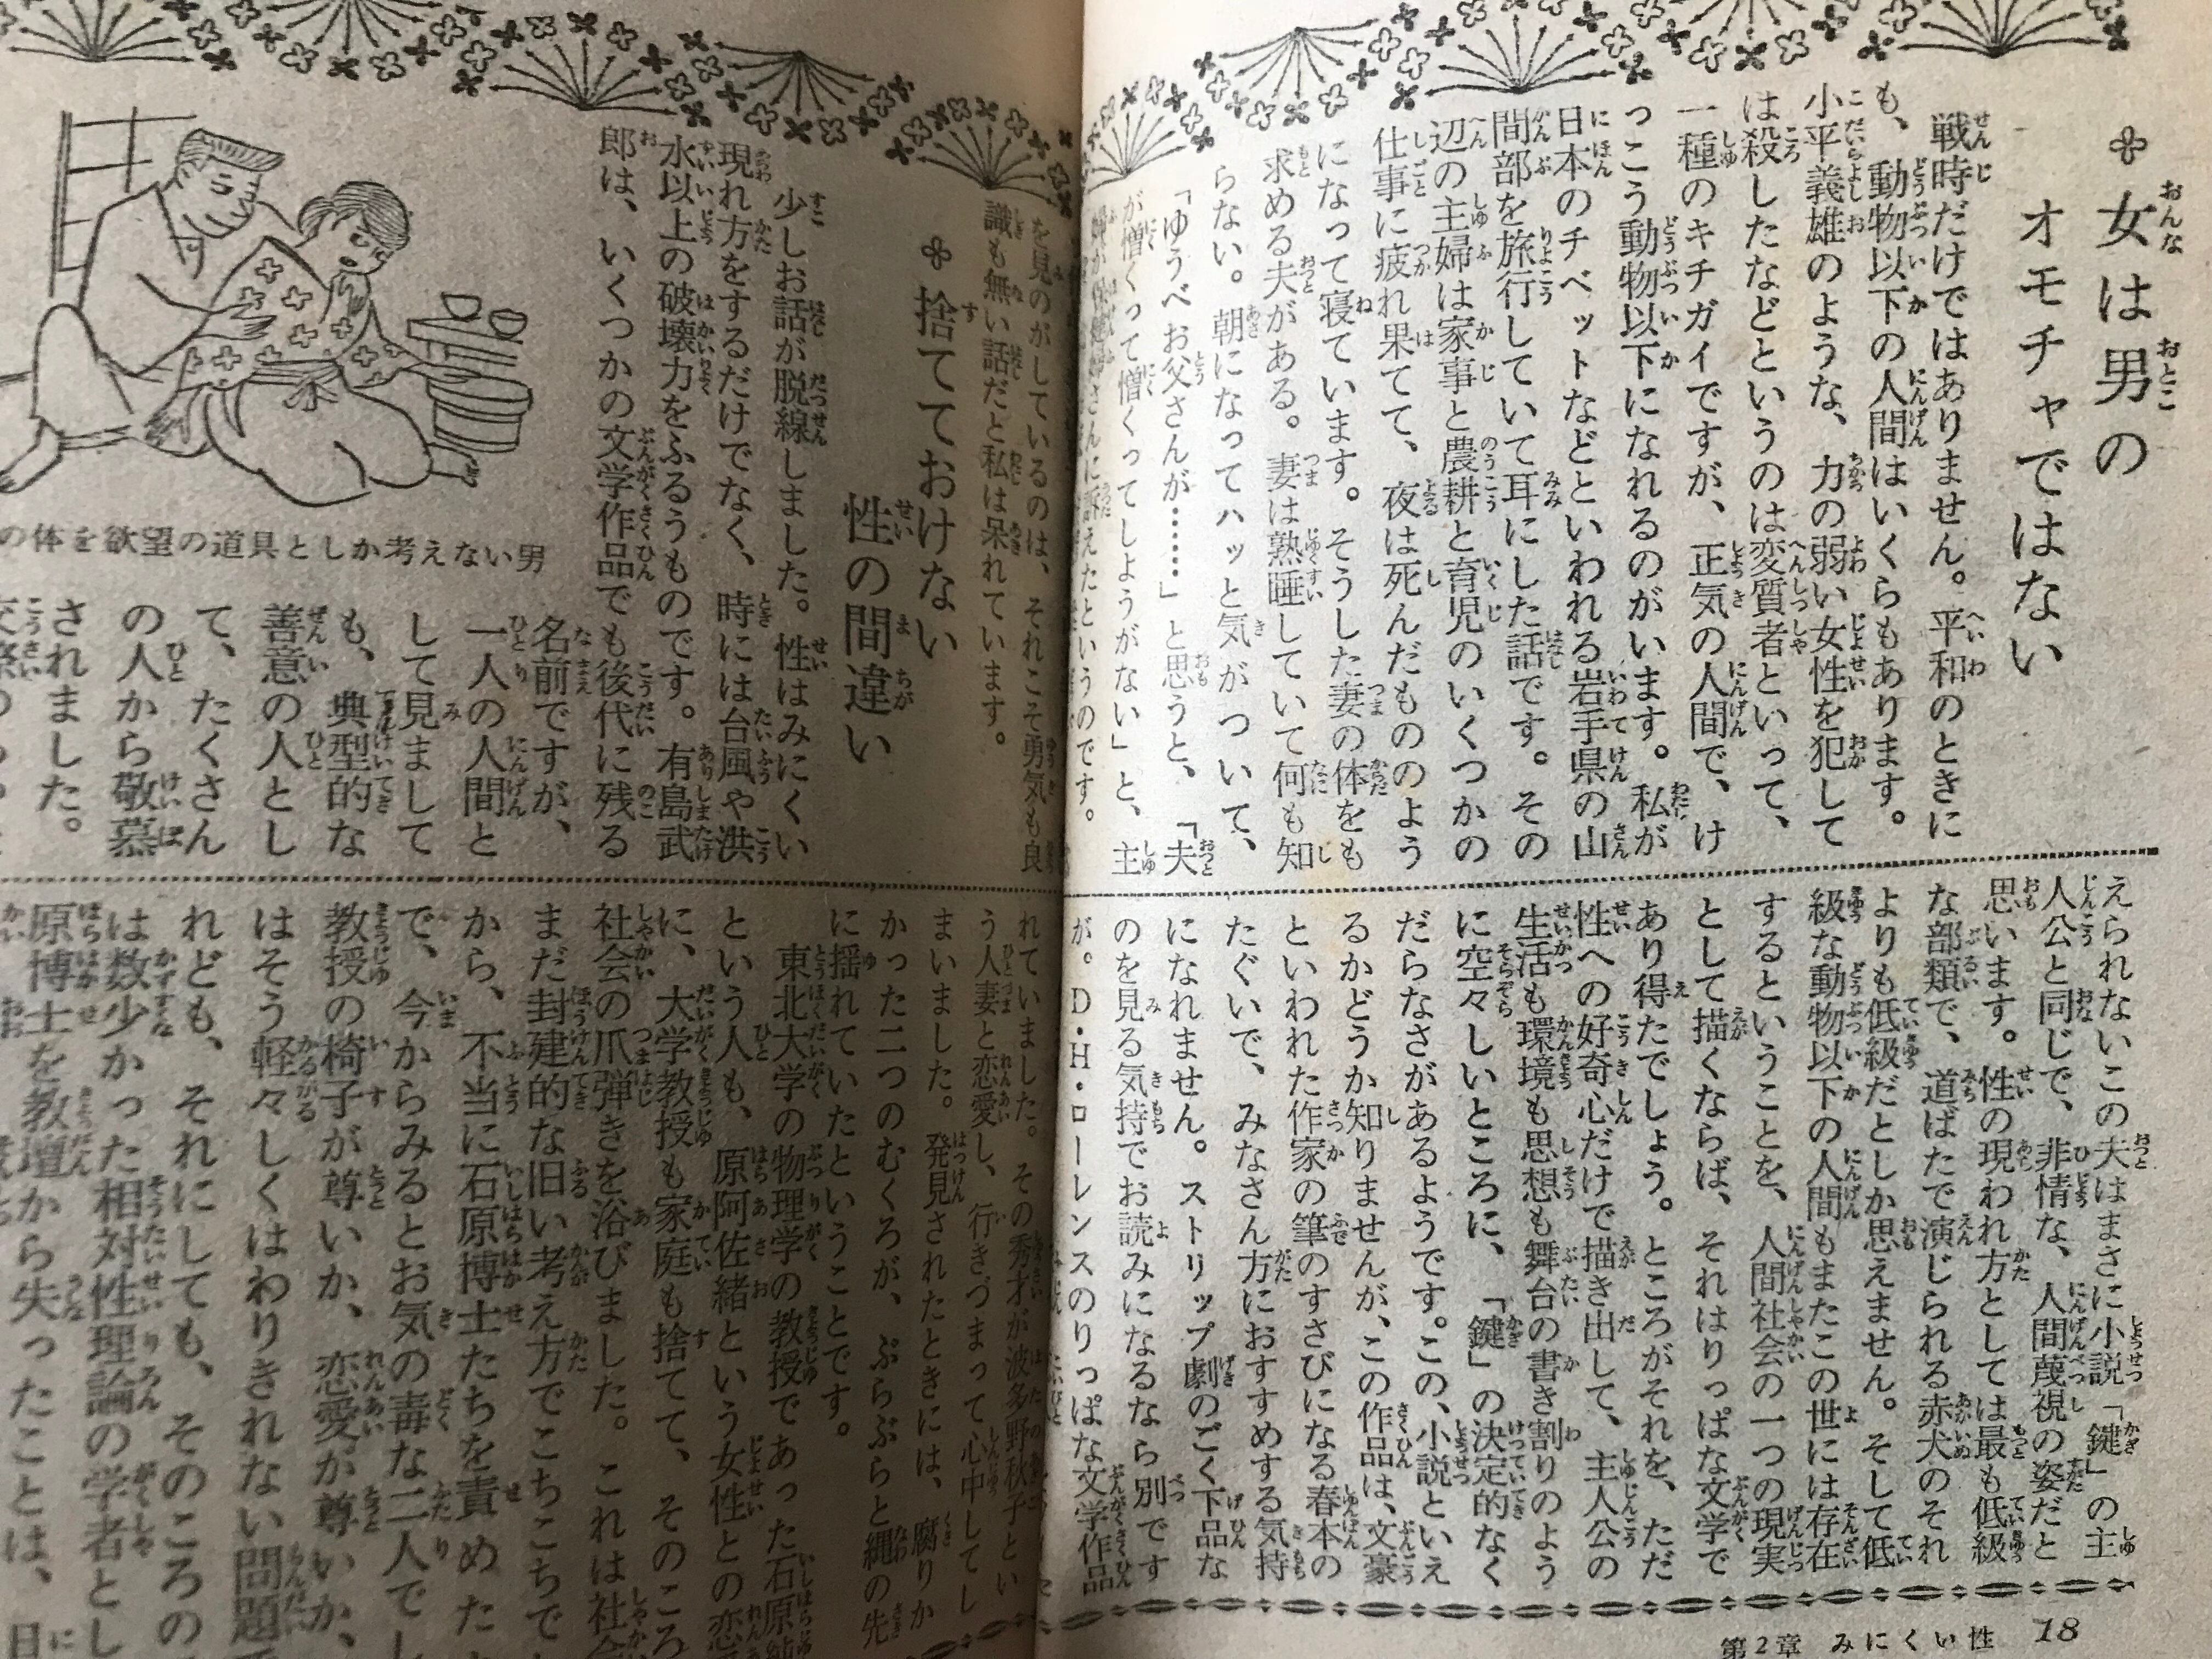 女は男の
オモチャではない
戦時だけではありません。平和のときに
も、動物以下の人間はいくらもあります。
小平義雄のような、力の弱い女性を犯して
は殺したなどというのは変質者といって、
一種のキチガイですが、正気の人間で、け
っこう動物以下になれるのがいます。私が
日本のチベットなどといわれる岩手県の山
間部を旅行していて耳にした話です。その
辺の主婦は家事と農耕と育児のいくつかの
仕事に疲れ果てて、夜は死んだもののよう
になって寝ています。そうした妻の体をも
求める夫がある。妻は熟睡していて何も知
らない。朝になってハッと気がついて、
「ゆうべお父さんが……」と思うと、「夫
が憎くって憎くってしようがない」と、主
婦が保健婦さんに訴えたというのです。
えられないこの夫はまさに小説「鍵」の主
人公と同じで、非情な、人間蔑視の姿だと
思います。性の現われ方としては最も低級
な部類で、道ばたで演じられる赤犬のそれ
よりも低級だとしか思えません。そして低
級な動物以下の人間もまたこの世には存在
するということを、人間社会の一つの現実
として描くならば、それはりっぱな文学で
あり得たでしょう。ところがそれを、ただ
性への好奇心だけで描き出して、主人公の
生活も環境も思想も舞台の書き割りのよう
に空々しいところに、「鍵」の決定的なく
だらなさがあるようです。この、小説といえ
るかどうか知りませんが、この作品は、文豪
といわれた作家の筆のすさびになる春本の
たぐいで、みなさん方におすすめする気持
になれません。ストリップ劇のごく下品な
のを見る気持でお読みになるなら別です
が。D・H・ローレンスのりっぱな文学作品
第2章 みにくい性 18
を見のがしているのは、それこそ勇気も良
識も無い話だと私は呆れています。
捨てておけない
性の間違い
少しお話が脱線しました。性はみにくい
現れ方をするだけでなく、時には台風や洪
水以上の破壊力をふるうものです。有島武
郎は、いくつかの文学作品でも後代に残る
名前ですが、
一人の人間と
して見まして
も、典型的な
善意の人とし
て、たくさん
の人から敬慕
されました。
の体を欲望の道具としか考えない男
れていました。その秀才が波多野秋子とい
う人妻と恋愛し、行きづまって心中してし
まいました。発見されたときには、腐りか
かった二つのむくろが、ぶらぶらと縄の先
に揺れていたということです。
東北大学の物理学の教授であった石原
という人も、原阿佐緒という女性との恋
に、大学教授も家庭も捨てて、そのころ
社会の爪弾きを浴びました。これは社会
まだ封建的な旧い考え方でこちこちで
から、不当に石原博士たちを責めた
で、今からみるとお気の毒な二人でし
教授の椅子が尊いか、恋愛が尊いか、
はそう軽々しくはわりきれない問題
れども、それにしても、そのころの
は数少かった相対性理論の学者とし
原博士を教壇から失ったことは、日